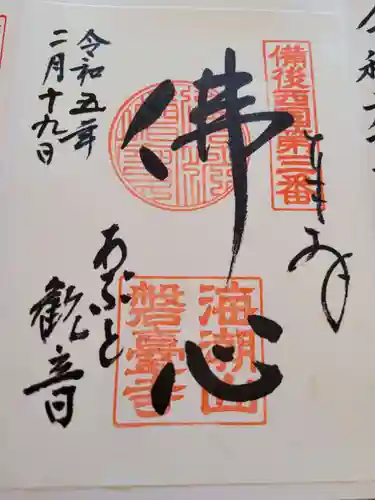 備後西国第三番
奉拝
佛心
海潮山
磐臺寺
あぶと
観音
令和五年
二月十九日